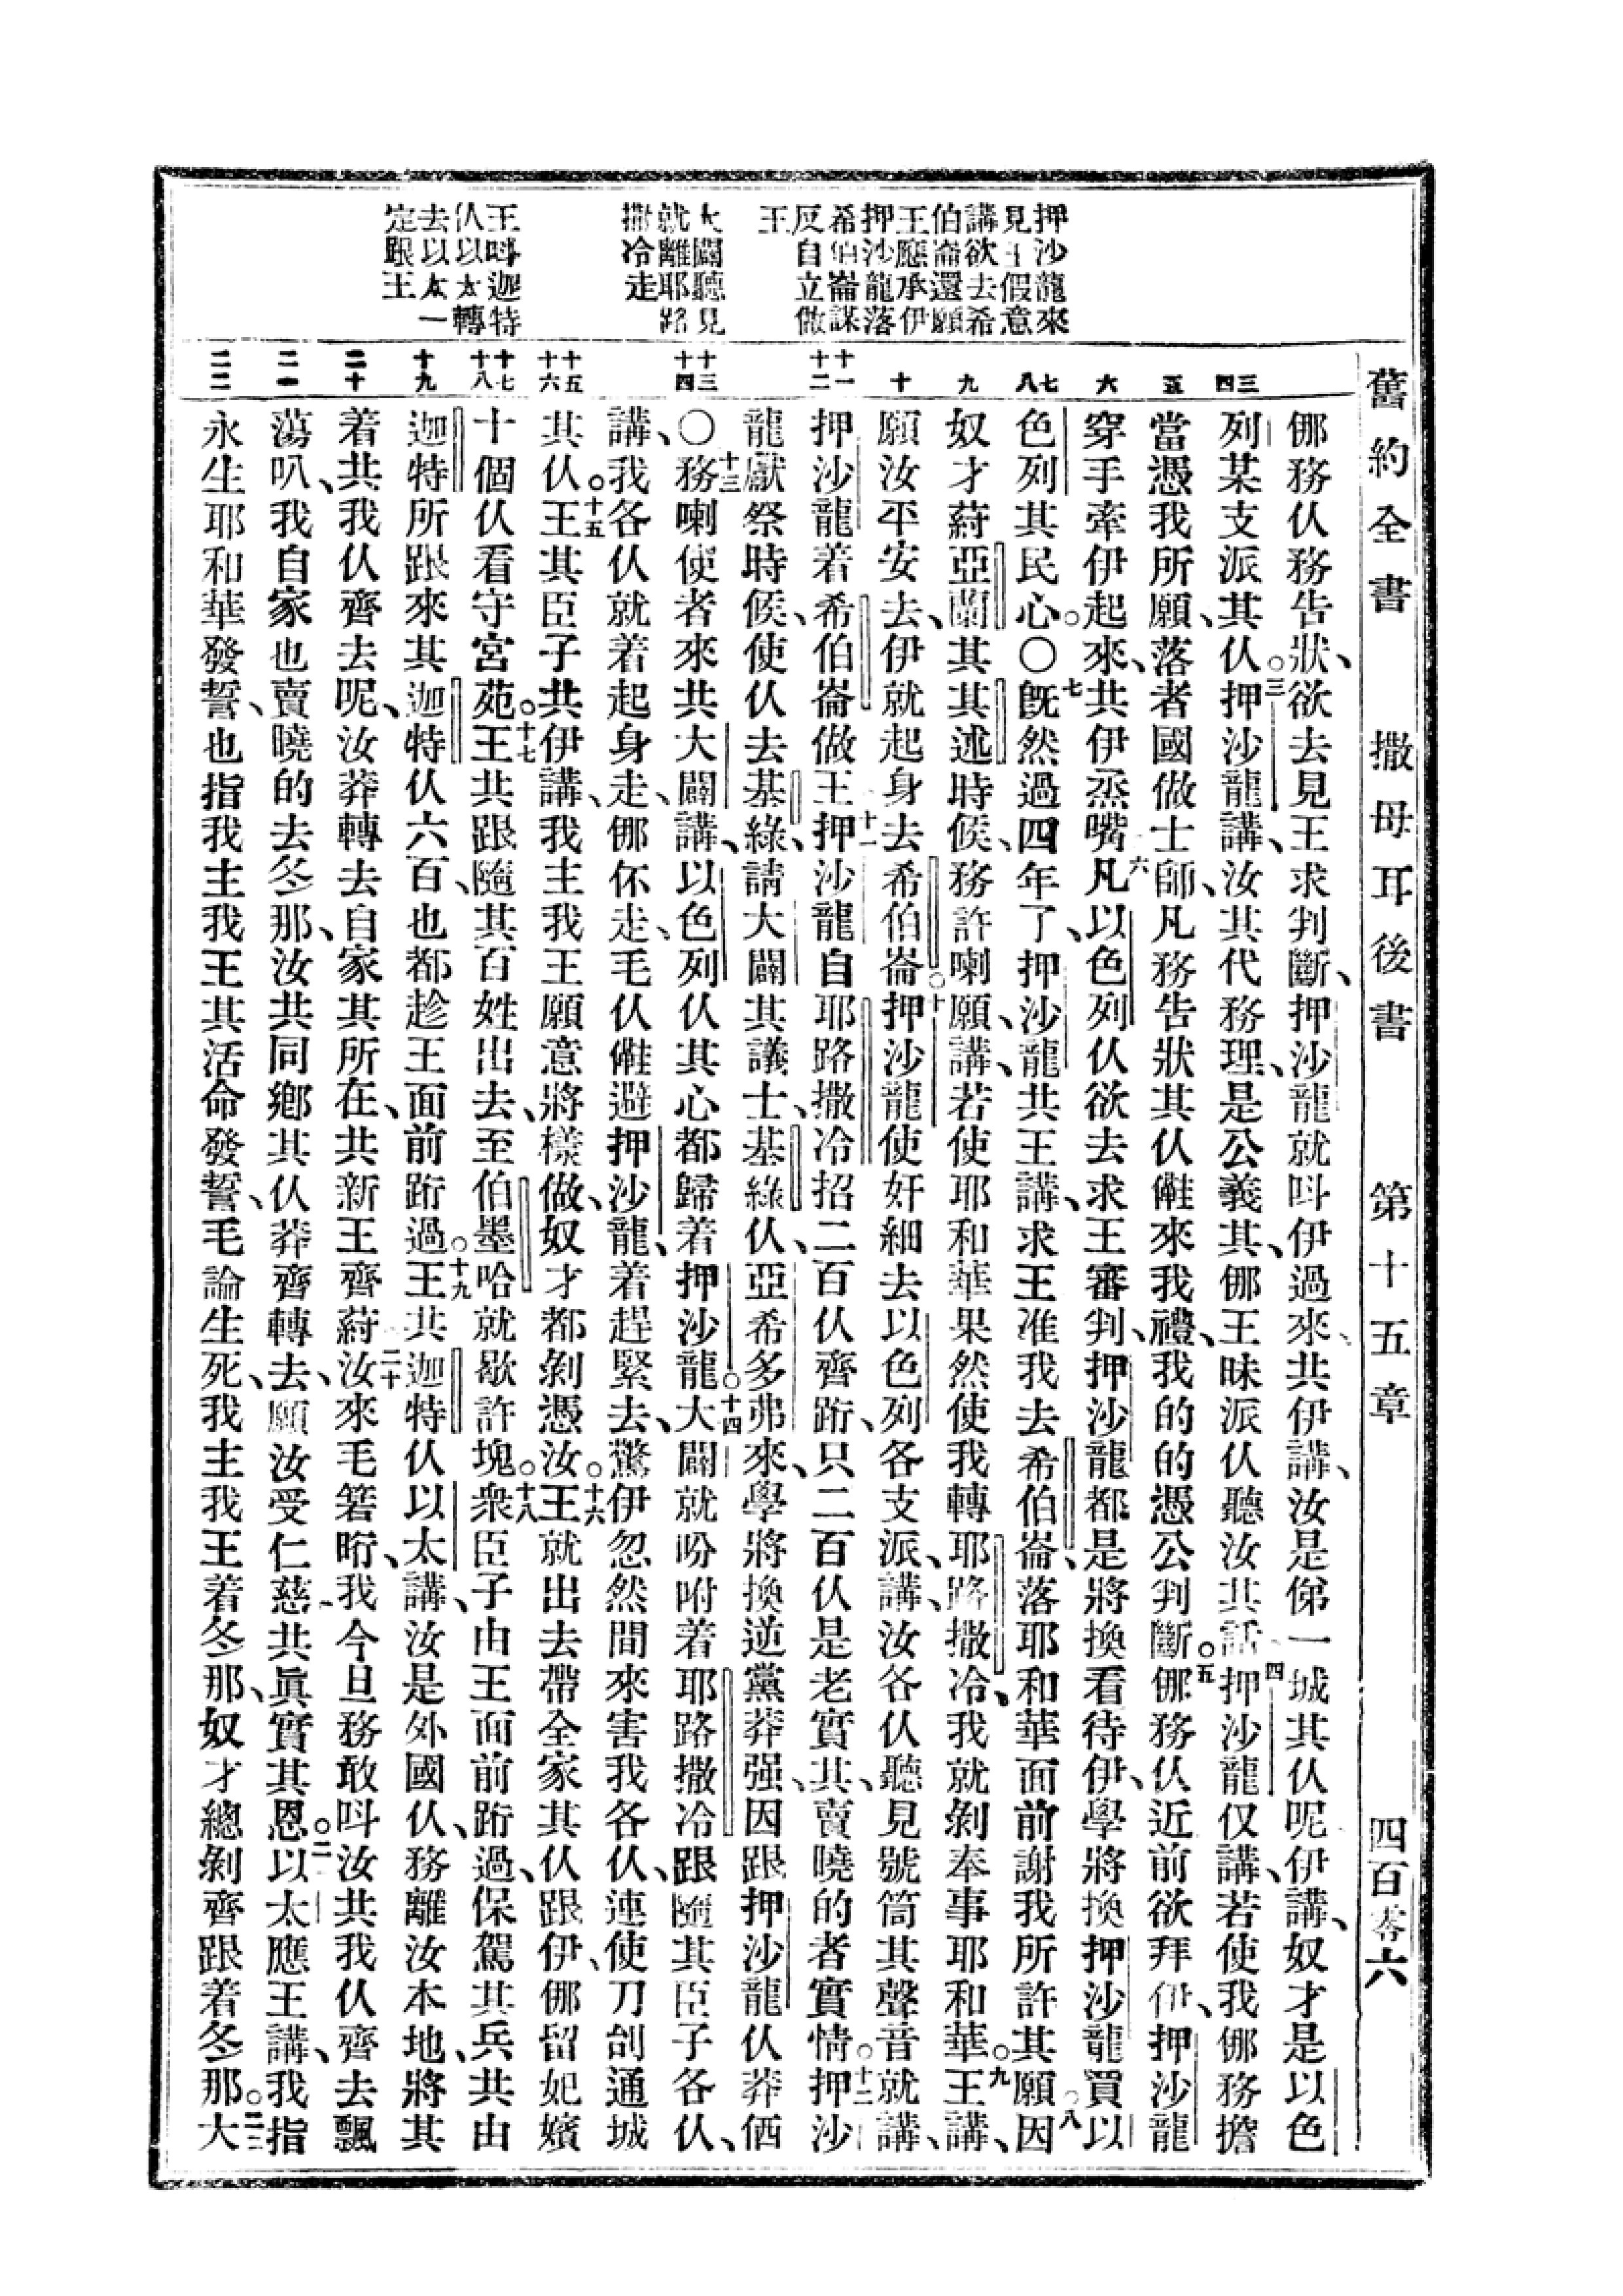 舊約全書 撒母耳後書 第十五章 四百零六
押沙龍來
見王假意
講欲去希
伯崙還願
王應承伊
押沙龍落
希伯崙謀
反自立做
王
大闢聽見
就離耶路
撒冷走
王呌迦特
仈以太轉
去以太一
定跟王
三
四
五
六
七
八
九
十
十一
十二
十三
十四
十五
十六
十七
十八
十九
二十
二一
二二
㑚務仈務告狀、欲去見王求判斷、押沙龍就呌伊過來、共伊講、汝是俤一城其仈呢伊講、奴才是以色
列某支派其仈。三押沙龍講、汝其代務理、是公義其、㑚王昧派仈聽汝其話四押沙龍仅講、若使我㑚務擔
當憑我所願、落者國做士師、凡務告狀其仈㒕來我禮、我的的憑公判斷。五㑚務仈近前欲拜伊、押沙龍
穿手牽伊起來、共伊烝嘴六凡以色列仈欲去求王審判、押沙龍都是將換看待伊、學將換押沙龍買以
色列其民心。〇七旣然過四年了、押沙龍共王講、求王准我去希伯崙、落耶和華面前謝我所許其願八因
奴才蒔亞蘭其其述時候、務許喇願、講、若使耶和華果然使我轉耶路撒冷、我就剝奉事耶和華。九王講、
願汝平安去、伊就起身去希伯崙。十押沙龍使奸細去以色列各支派、講、汝各仈聽見號筒其聲音就講、
押沙龍着希伯崙做王十一押沙龍自耶路撒冷招二百仈齊跔、只二百仈是老實其、賣曉的者實情。十二押沙
龍獻祭時候、使仈去基綠、請大闢其議士、基綠仈、亞希多弗來、學將換逆黨莽强、因跟押沙龍仈莽価
〇十三務喇使者來共大闢講、以色列仈其心都歸着押沙龍。十四大闢就吩咐着耶路撒冷跟隨其臣子各仈、
講、我各仈就着起身走、㑚伓走、毛仈㒕避押沙龍、着趕緊去、驚伊忽然間來害我各仈、連使刀刣通城
其仈。十五王其臣子共伊講、我主我王願意將樣做、奴才都剝憑汝。十六王就出去帶全家其仈跟伊、㑚留妃嬪
十個仈看守宮苑。十七王共跟隨其百姓出去、至伯墨哈就歇許塊。十八衆臣子由王面前跔過、保駕其兵共由
迦特所跟來其迦特仈六百、也都趁王面前跔過。十九王共迦特仈以太講、汝是外國仈、務離汝本地、將其
着共我仈齊去呢、汝莽轉去自家其所在、共新王齊蒔二十汝來毛箬晌、我今旦務敢呌汝共我仈齊去飄
蕩叭、我自家也賣曉的去冬那、汝共同鄉其仈莽齊轉去、願汝受仁慈共眞實其恩。二一以太應王講、我指
永生耶和華發誓、也指我主我王其活命發誓、毛論生死、我主我王着冬那、奴才總剝齊跟着冬那。二二大